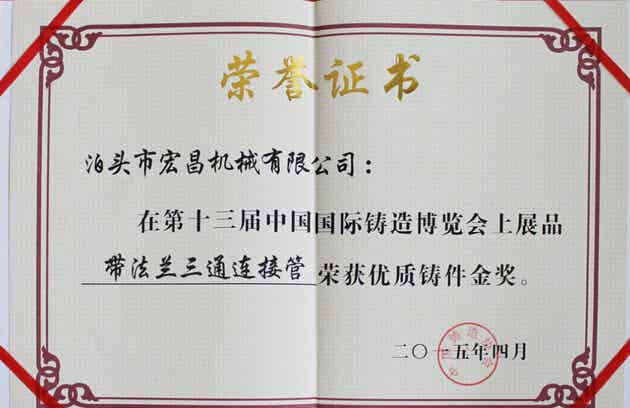 荣誉证书
泊头市宏昌机械有限公司：
在第十三届中国国际铸造博览会上展品
带法兰三通连接管荣获优质铸件金奖。
二〇一五年四月